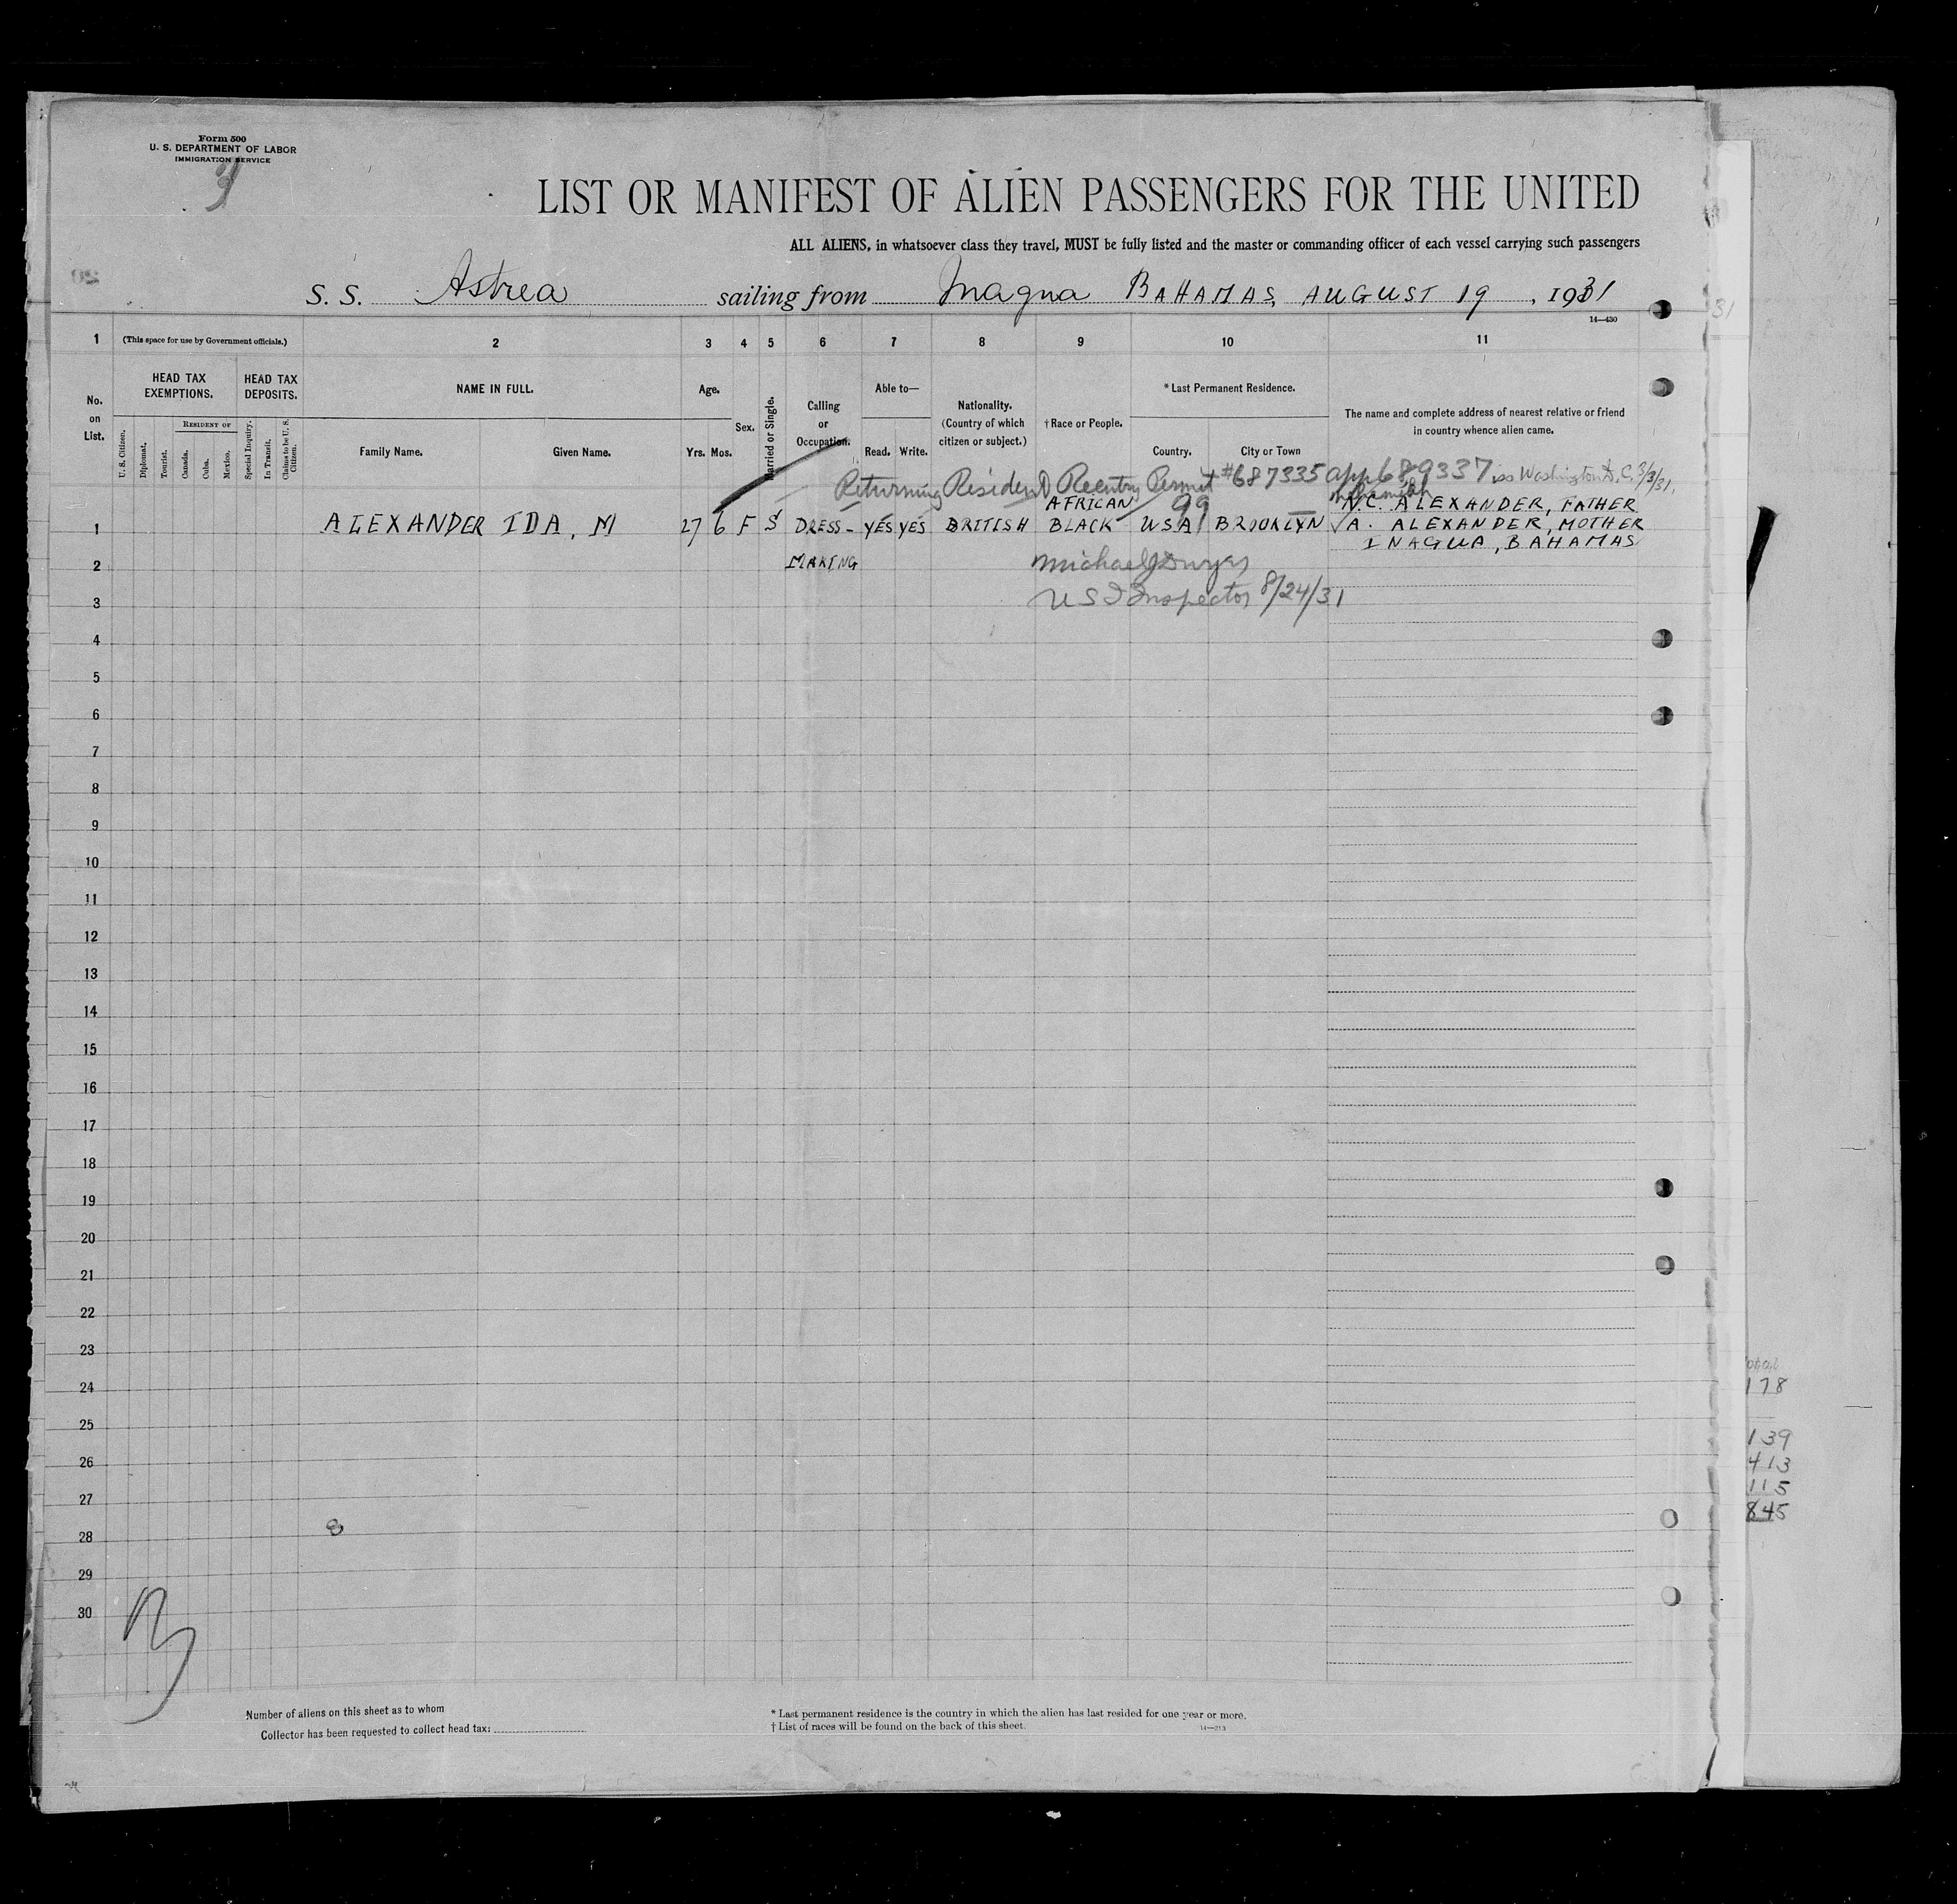 Form 500
U. S. DEPARTMENT OF LABOR
IMMIGRATION SERVICE
3
LIST OR MANIFEST OF ALIEN PASSENGERS FOR THE UNITED
ALL ALIENS, in whatsoever class they travel, MUST be fully listed and the master or commanding officer of each vessel carrying such passengers
S. S. Astrea sailing from Inagua BAHAMAS, AUGUST 19, 1931
14—430
1 (This space for use by Government officials.) 2 3 4 5 6 7 8 9 10 11
No. on List.
HEAD TAX EXEMPTIONS.
HEAD TAX DEPOSITS.
U. S. Citizen. Diplomat. Tourist. RESIDENT OF Canada. Cuba. Mexico. Special Inquiry. In Transit. Claims to be U. S. Citizen.
NAME IN FULL.
Family Name. Given Name.
Age.
Yrs. Mos.
Sex.
Married or Single.
Calling or Occupation.
Able to—
Read. Write.
Nationality. (Country of which citizen or subject.)
†Race or People.
*Last Permanent Residence.
Country. City or Town
The name and complete address of nearest relative or friend in country whence alien came.
Returning Resident Reentry Permit #687335 app 689337 iss Washington D.C. 3/3/31.
AFRICAN 99 N.C. ALEXANDER, FATHER
1 ALEXANDER IDA, M 27 6 F S DRESS- YES YES BRITISH BLACK USA BROOKLYN √A. ALEXANDER, MOTHER
INAGUA, BAHAMAS
2 MAKING Michael J Dwyer
3 US I Inspector 8/24/31
4
5
6
7
8
9
10
11
12
13
14
15
16
17
18
19
20
21
22
23
24
25
26
27
28
29
30
8
178
139
413
115
845
Number of aliens on this sheet as to whom
Collector has been requested to collect head tax:
* Last permanent residence is the country in which the alien has last resided for one year or more.
† List of races will be found on the back of this sheet.
14—213